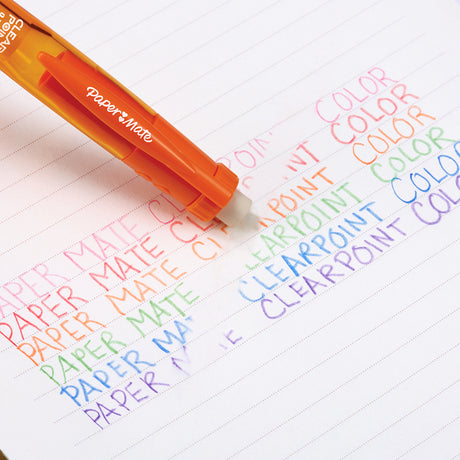 CLEARPOINT
Paper Mate
APER MATE CLEARPOIN COLOR
PAPER MATE CL NT COLOR
PAPER MATE CL POINT COLOR
PAPER MATE EARPOINT COLOR
PAPER MAT CLEARPOINT COLOR
PAPER M E CLEARPOINT COLO